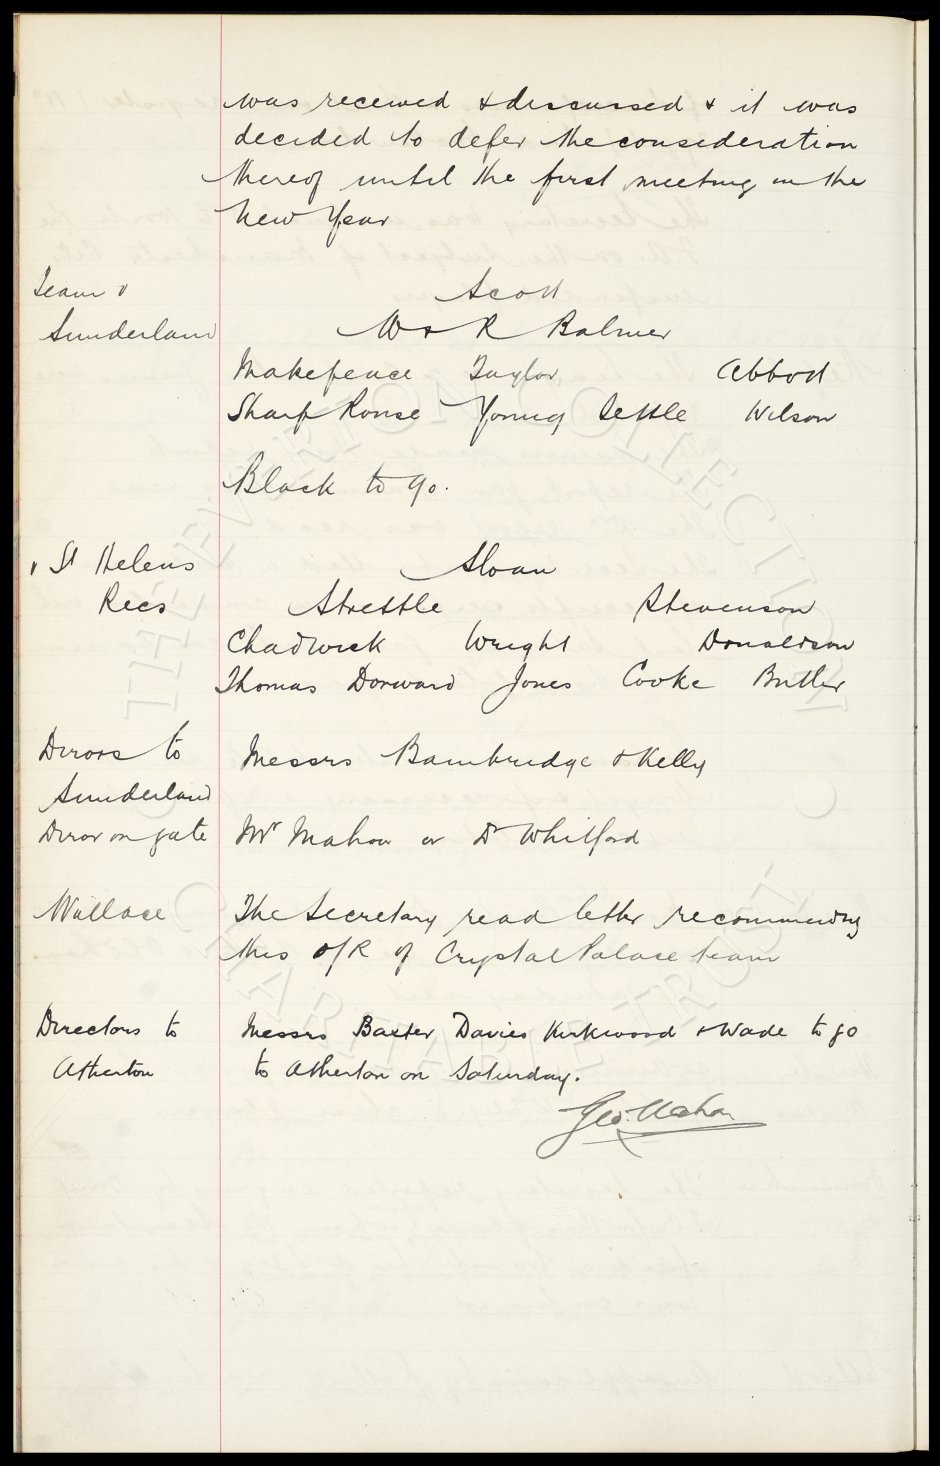 was received & discussed & it was
decided to defer the consideration
thereof until the first meeting in the
New Year
Team v
Sunderland
Scott
W & R Balmer
Makepeace Taylor Abbott
Sharp Rouse Young Settle Wilson
Black to go.
v St Helens
Recs
Sloan
Strettle Stevenson
Chadwick Wright Donaldson
Thomas Dorward Jones Cooke Butler
Dirors to
Sunderland
Messrs Bainbridge & Kelly
Diror on gate
Mr Mahon or Dr Whitford
Wallace
The Secretary read letter recommending
this O/R of Crystal Palace team
Directors to
Atherton
Messrs Baxter Davies Kirkwood & Wade to go
to Atherton on Saturday.
Geo. Mahon
THE EVERTON COLLECTION
CHARITABLE TRUST